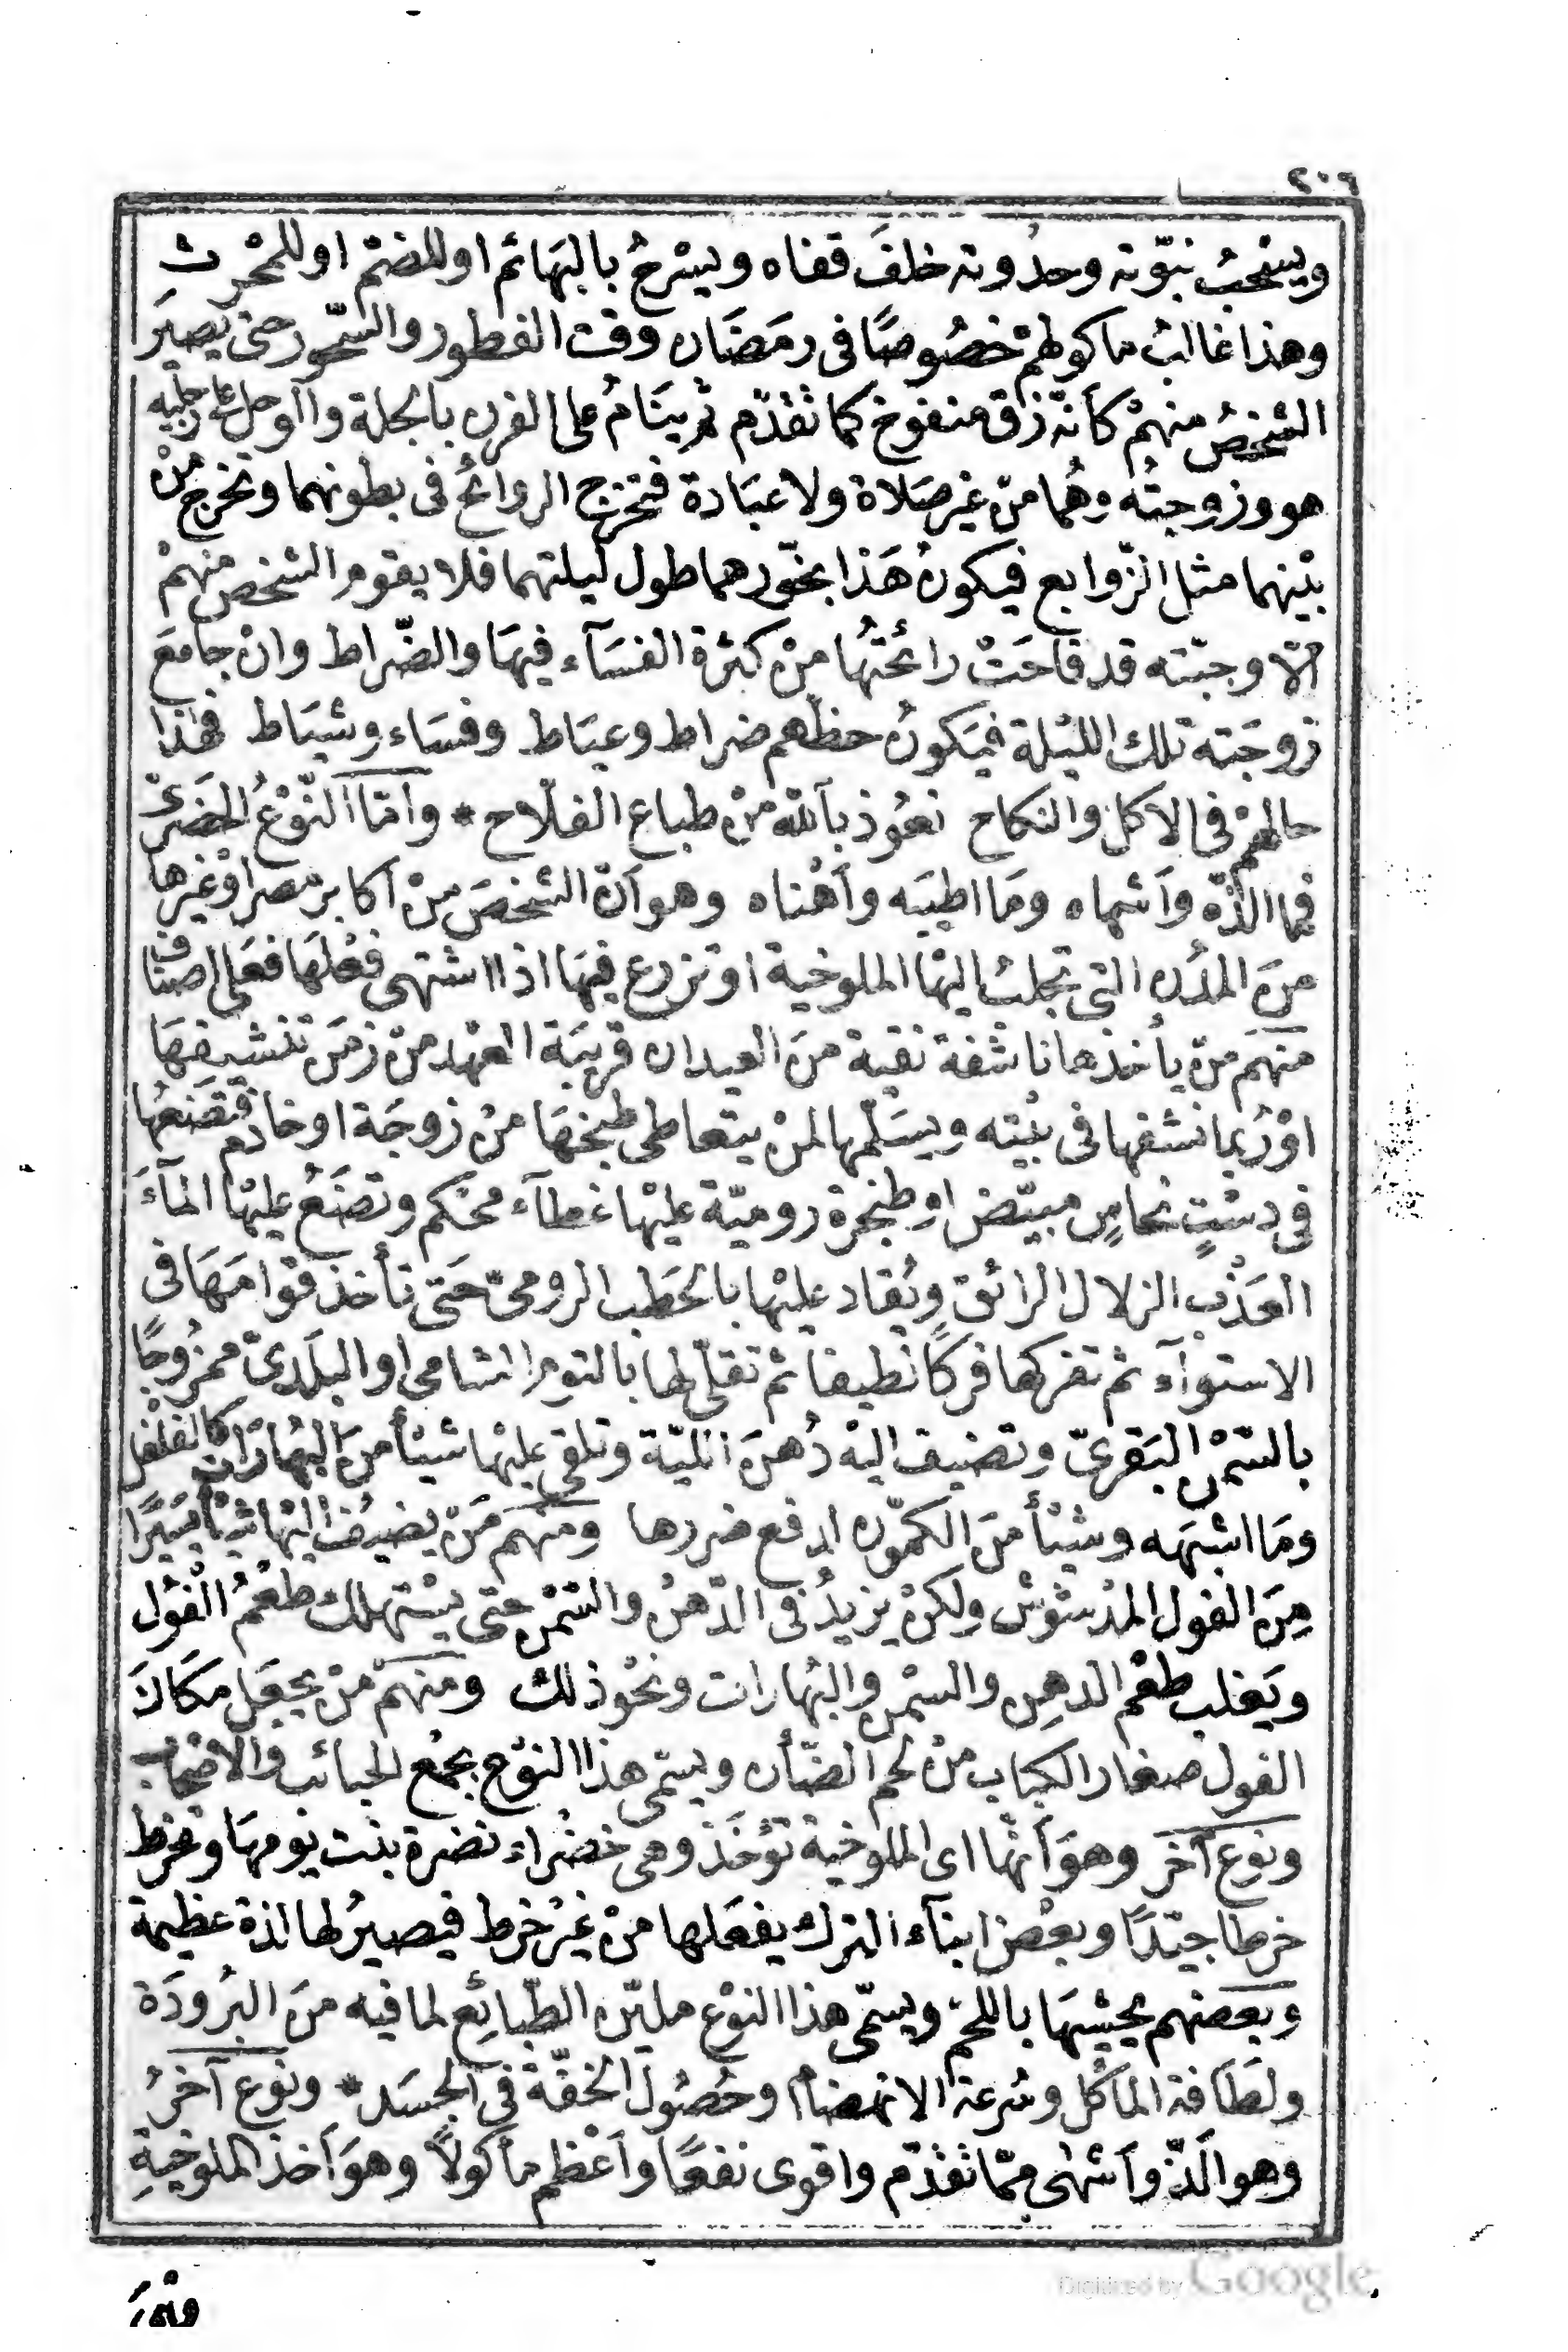 ٢٠٦
ويسحبُ نبّوته وحدُوته خلفَ قفاه ويسْرحُ بالبهَائم او للضم او للحْرثِ
وهذا غالبُ ماكولهمْ خصُوصًا فى رمَضَان وقت الفطور والسّحور حتى يصيرَ
الشخصُ منهمْ كأنّه زق منفوخ كما تقدّم ثم ينَامُ على الفرن بالجلة والوحل على رجليه
هو وزوجتُه وهُما منْ غير صَلاة ولا عبَادة فتمتزج الروائحُ فى بطونهما وتخرج منْ
بيْنهما مثل الزّوابع فيكونُ هَذا بخّورهما طول ليلتهما فلا يقوم الشخص منهمْ
الّا وجبّته قد فاحَتْ رائحتُها منْ كثرة الفسَآء فيهَا والضّراط وانْ جامَعَ
زوجَته تلك الليْلة فيَكونُ حظهم ضراط وعيَاط وفسَاء وشيَاط فهذا
حالهمْ فى الاكل والنكاح نعُوذ باَللّه منْ طباع الفلّاح * وأمّا النّوْعُ الحَضَرىّ
فما الذّه وأشهاه ومَا اطيبَه وأهْناه وهو أنّ الشخصَ منْ أكابر مصر أوْ غيْرها
منَ المدُن التى تجلبُ اليْها الملوخية او تزرع فيهَا اذا اشتهى فعْلهَا فعَلى اصنَاف
منهَم منْ يأخذها ناشفة نقية منَ العيدان قريبَة العهْد منْ زمَن تنشيفهَا
اوْ رُبما نشفها فى بيْته ويسَلّمها لمنْ يتعاطى طبْخهَا منْ زوجَة او خادم فتَضَعهُا
فى دسْتٍ نحاسٍ مبيّض او طنجرة روميّة عليْها غطآء محْكم وتضَعُ عليْها المآءَ
العَذْب الزلال الرائق ويُقاد عليْها بالحَطب الرومىّ حَتى تأخذ قوَامهَا فى
الاستوآء ثم تفركها فركًا نظيفا ثم تقلّى لها بالتوم الشامى او البلَدىّ ممزُوجًا
بالسّمْن البَقرىّ وتضيف اليْه دُهنَ الليّة وتلقى عليْها شيئاً منَ البهَارَات كالفلفل
ومَا اشبَهه وشيْئاً منَ الكمّون لدفع ضررها ومنهَم مَنْ يضيُف اليْها شيْأ يسَيرًا
منَ الفول المدْشوُشْ ولكنْ يزيدُ فى الدّهنْ والسّمْن حتى يسْتهلك طعْمُ الْفوُل
ويَغلب طعْم الدهِن والسمْن والبُهارات ونحْو ذلك ومنهَم منْ يجعَل مكَانَ
الفول صغار الكبَاب منْ لحْم الضّأن ويسمّى هذا النوْع بجمْع الحبائب والاصْحاب
ونوع آخر وهوَ أنّها اى الملوخية تؤخَذ وهى خضْراء نضرة بنْت يوْمهَا وتخرط
خرطا جيّدًا وبعْض ابنآء الترك يفعَلها منْ غيْر خرط فيصيرُ لها لذة عظيمة
وبَعضهم يحشيْهَا باللحم ويسمّى هذا النوْع مليّن الطّبائع لما فيه منَ البرُودَة
ولطَافة المأكل وسُرعة الانهضام وحُصُول الخفّة فى الجسَد * ونوع آخرُ
وهو ألَذّ وأشهْى ممّا تقدّم واقوى نفعًا وأعْظم مأكولاً وهوَ أخذ الملوخيةِ
Digitized by Google